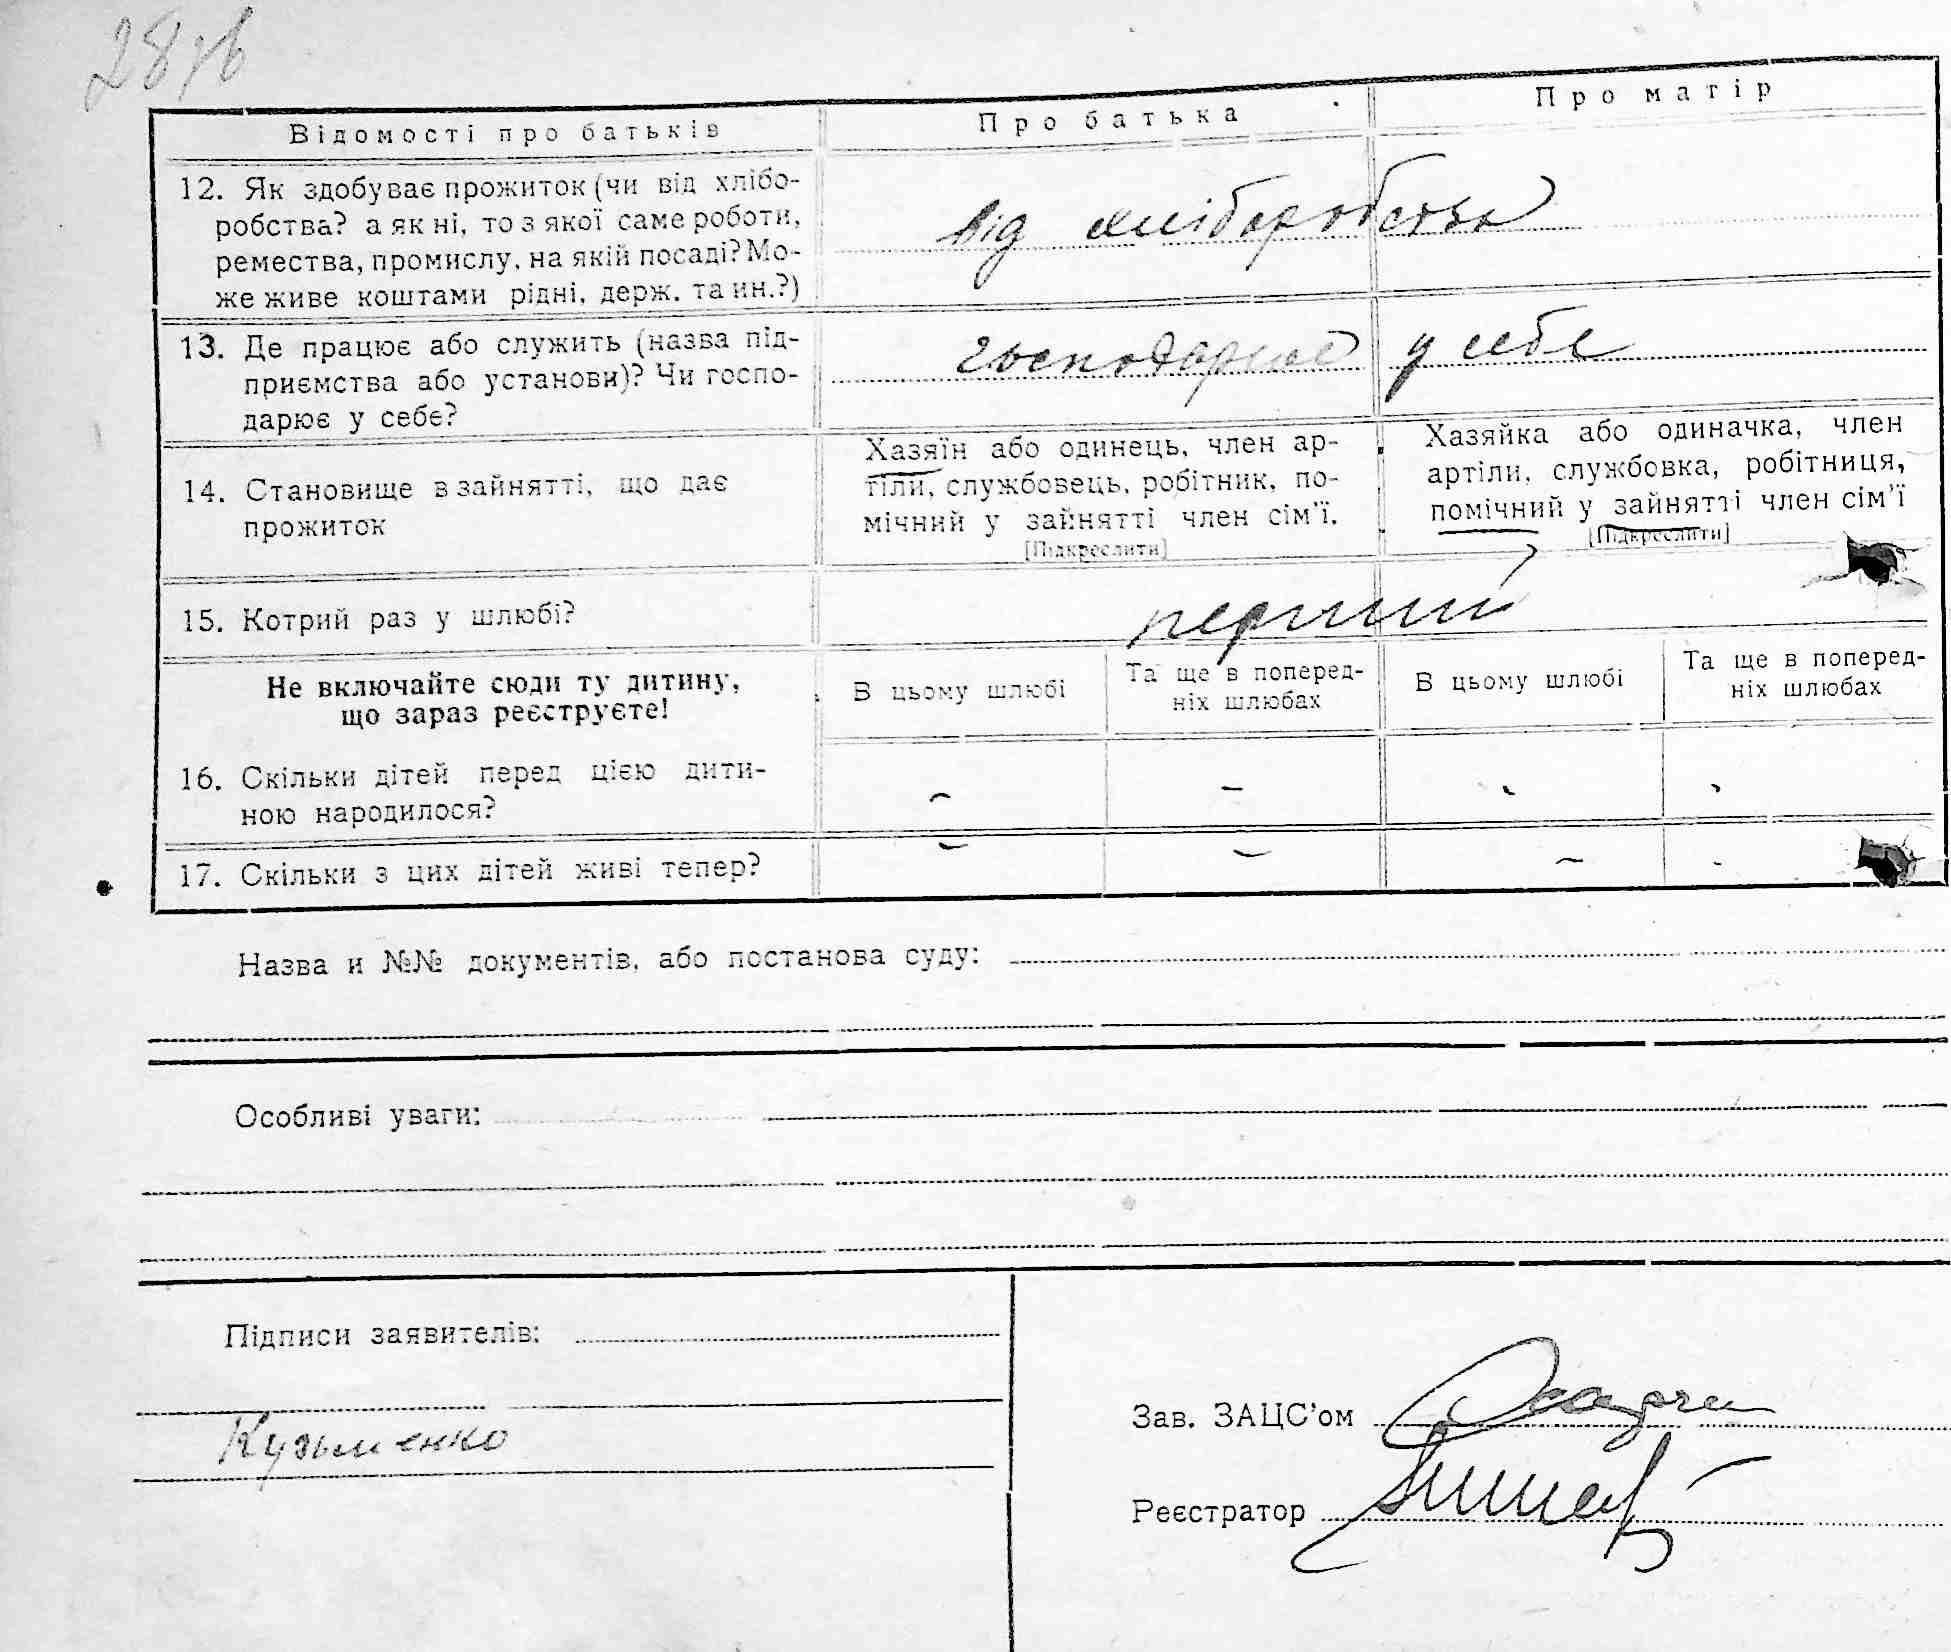 28 зв
Відомості про батьків
Про батька
Про матір
12. Як здобуває прожиток (чи від хлібо-
робства? а як ні, то з якої саме роботи,
ремества, промислу, на якій посаді? Мо-
же живе коштами рідні, держ. та ин.?)
від хліборобства
13. Де працює або служить (назва під-
приємства або установи)? Чи госпо-
дарює у себе?
господарює у себе
14. Становище в зайнятті, що дає
прожиток
Хазяїн або одинець, член ар-
тіли, службовець, робітник, по-
мічний у зайнятті член сім'ї.
[Підкреслити]
Хазяйка або одиначка, член
артіли, службовка, робітниця,
помічний у зайнятті член сім'ї
[Підкреслити]
15. Котрий раз у шлюбі?
перший
Не включайте сюди ту дитину,
що зараз реєструєте!
В цьому шлюбі
Та ще в поперед-
ніх шлюбах
В цьому шлюбі
Та ще в поперед-
ніх шлюбах
16. Скільки дітей перед цією дити-
ною народилося?
- - - -
17. Скільки з цих дітей живі тепер?
- - - -
Назва и №№ документів, або постанова суду:
Особливі уваги:
Підписи заявителів:
Кузьменко
Зав. ЗАЦС'ом
Реєстратор